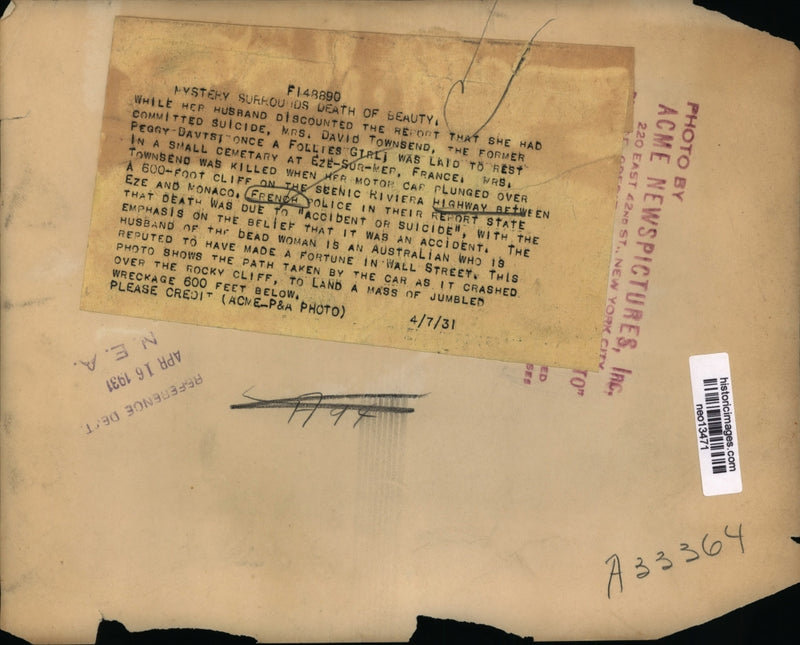 F148890
MYSTERY SURROUNDS DEATH OF BEAUTY.
WHILE HER HUSBAND DISCOUNTED THE REPORT THAT SHE HAD
COMMITTED SUICIDE, MRS. DAVID TOWNSEND, THE FORMER
PEGGY DAVIS, ONCE A FOLLIES GIRL, WAS LAID TO REST
IN A SMALL CEMETARY AT EZE-SUR-MER, FRANCE. MRS.
TOWNSEND WAS KILLED WHEN HER MOTOR CAR PLUNGED OVER
A 600-FOOT CLIFF ON THE SCENIC RIVIERA HIGHWAY BETWEEN
EZE AND MONACO. FRENCH POLICE IN THEIR REPORT STATE
THAT DEATH WAS DUE TO "ACCIDENT OR SUICIDE", WITH THE
EMPHASIS ON THE BELIEF THAT IT WAS AN ACCIDENT. THE
HUSBAND OF THE DEAD WOMAN IS AN AUSTRALIAN WHO IS
REPUTED TO HAVE MADE A FORTUNE IN WALL STREET. THIS
PHOTO SHOWS THE PATH TAKEN BY THE CAR AS IT CRASHED
OVER THE ROCKY CLIFF, TO LAND A MASS OF JUMBLED
WRECKAGE 600 FEET BELOW.
PLEASE CREDIT (ACME-P&A PHOTO)
4/7/31
PHOTO BY
ACME NEWSPICTURES, INC.
220 EAST 42ND ST., NEW YORK CITY
TO"
N. E. A.
APR 16 1931
REFERENCE DEPT.
historicimages.com
neo13471
A33364